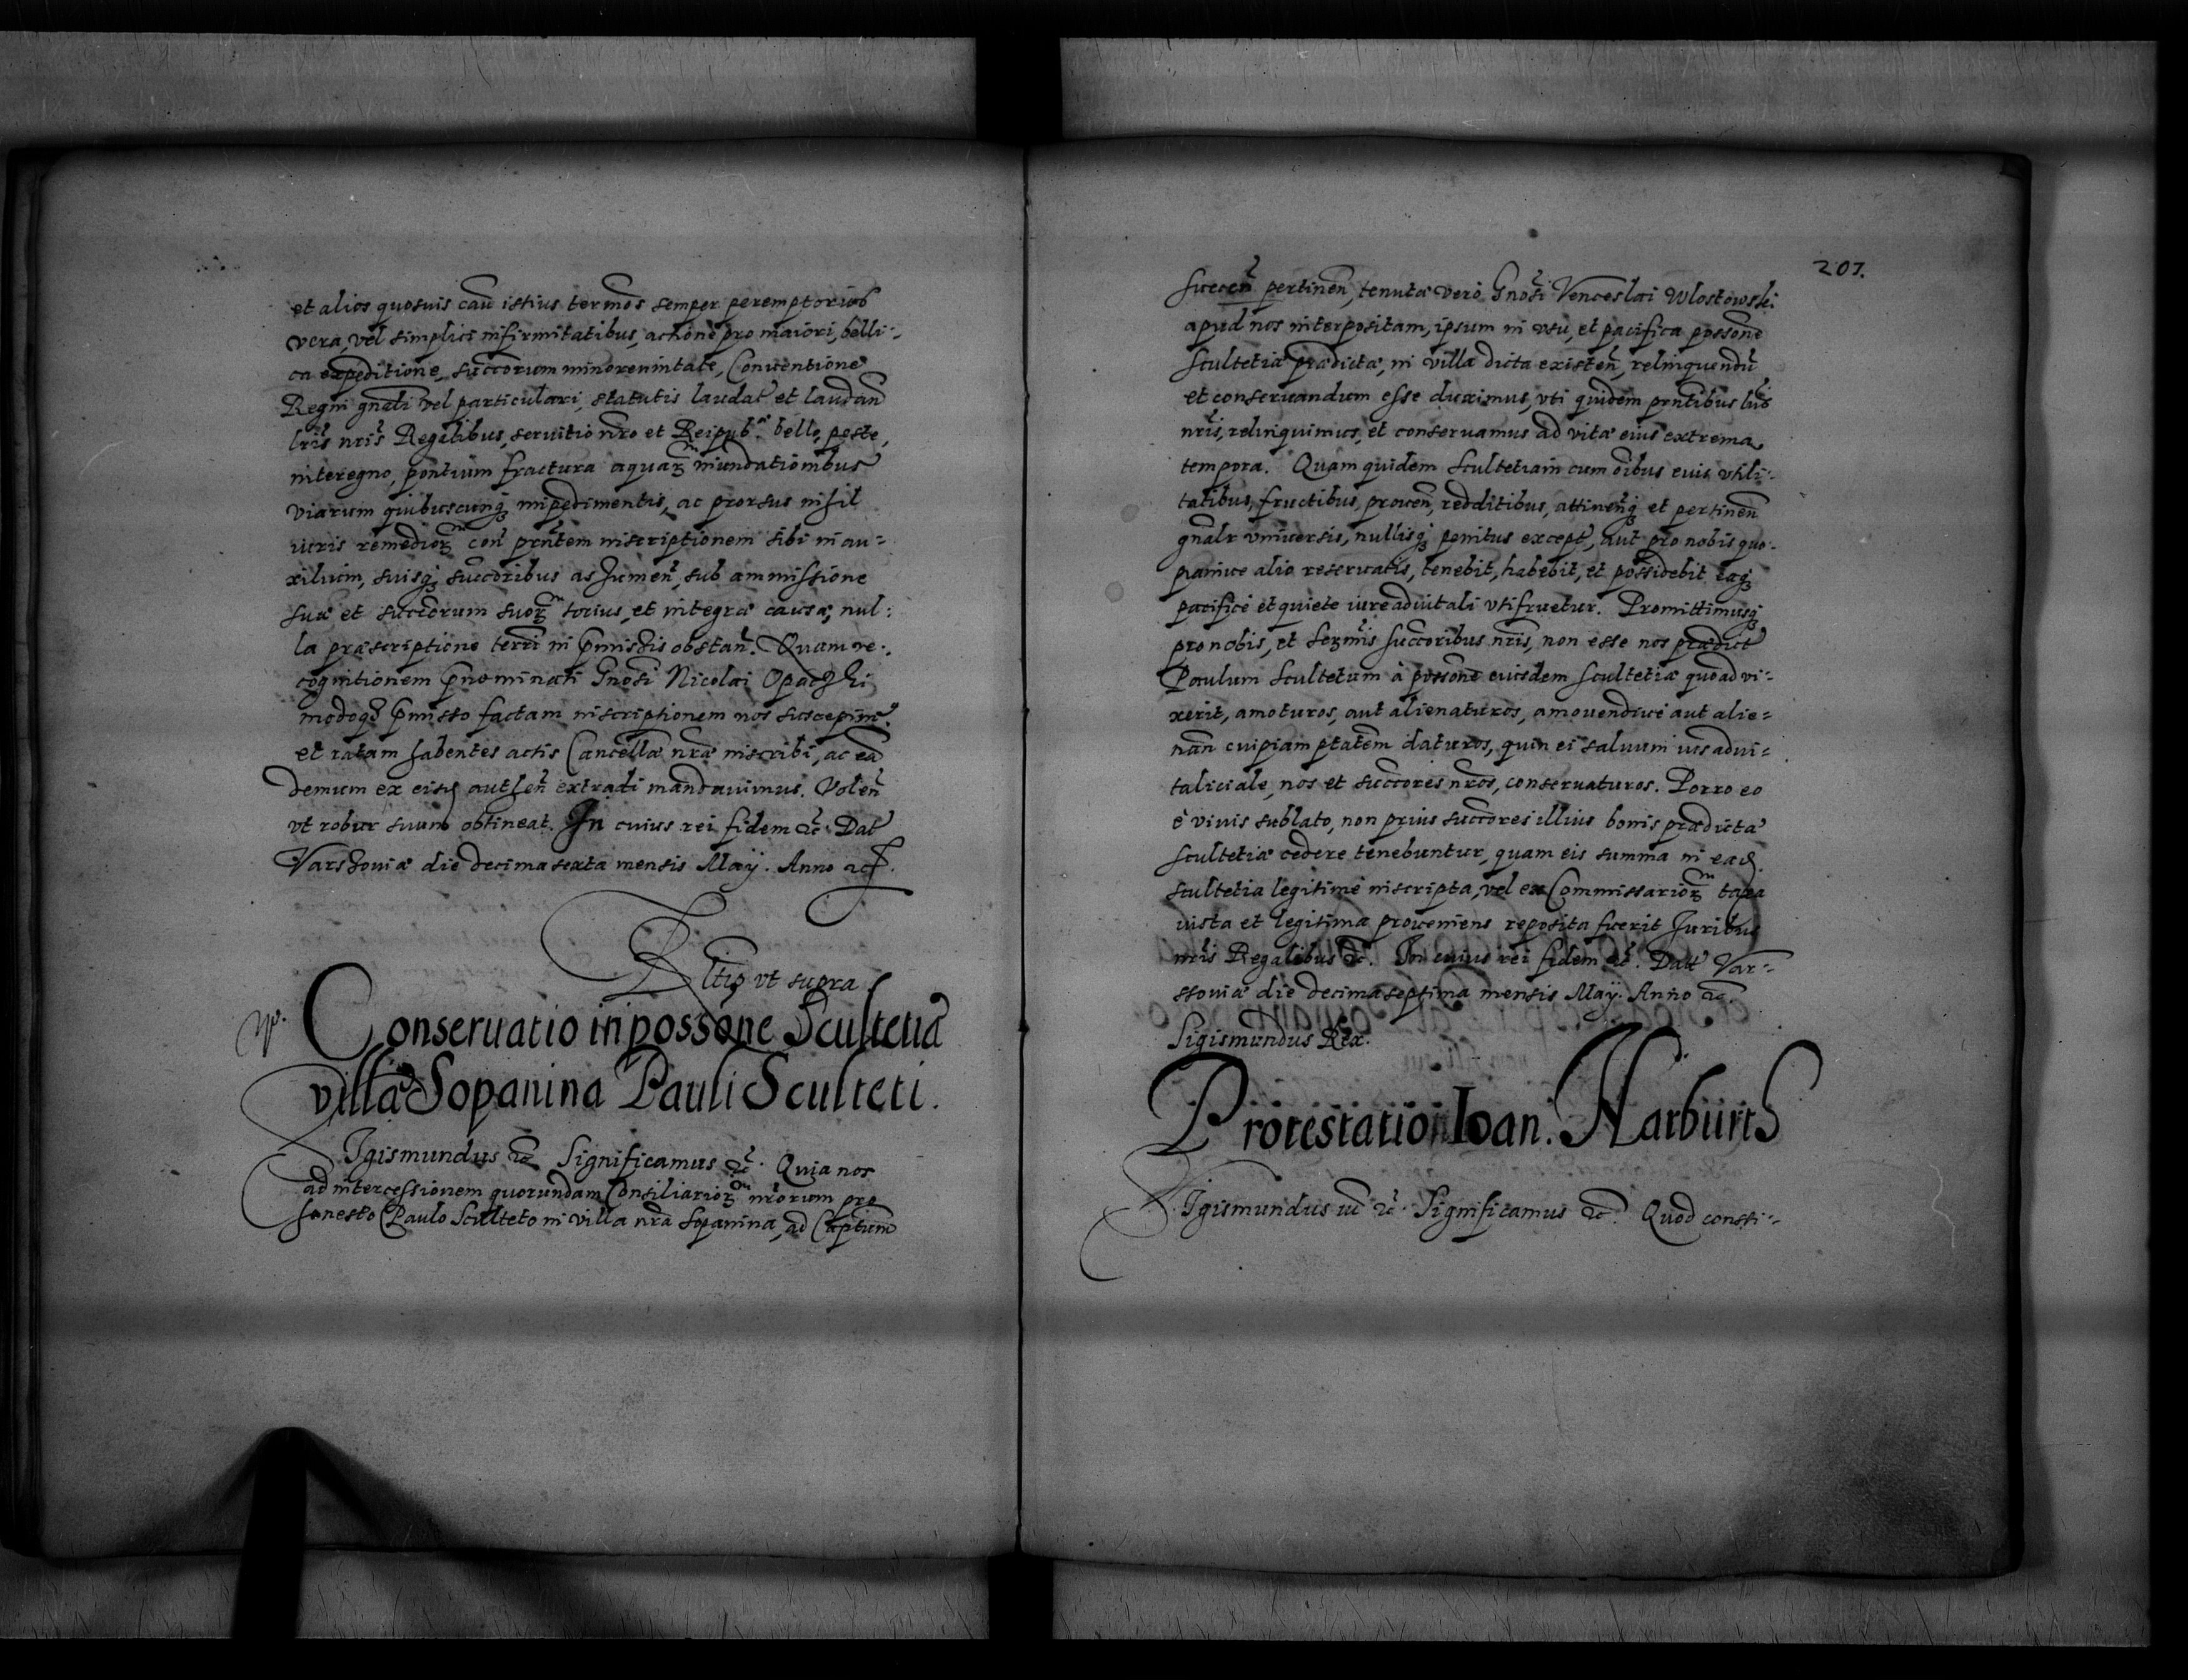 et alios quosuis cau istius termos semper peremptorios
vera, vel simplici infirmitatibus, actione pro maiori, belli-
ca expeditione, succorum minorennitate, Conuentione
Regni gnali vel particulari, statutis laudat et laudan
lris nris Regalibus, seruitio nro et Reipub. bello, peste,
interegno, pontium fractura aquar inundationibus
viarum quibuscunq impedimentis, ac prorsus nihil
iuris remedior con prntem inscriptionem sibi in au-
xilium, suisq succoribus assumen, sub ammissione
suæ et succorum suor totius, et integræ causæ, nul-
la præscriptione terri in pmissis obstan. Quam re-
cognitionem pnominati Gnosi Nicolai Opaczki
modoq pmisso factam inscriptionem nos suscepim
et ratam habentes actis Cancellæ nræ inscribi, ac eã
demum ex eisd authen extradi mandauimus. Volen
vt robur suum obtineat. In cuius rei fidem etc. Dat
Varshouiæ die decima sexta mensis Maÿ. Anno etc.
Rltio vt supra
Conseruatio in possone Scultetiæ
villæ Sopanina Pauli Sculteti.
Sigismundus etc. Significamus etc. Quia nos
ad intercessionem quorundam Consiliarior nrorum pro
honesto Paulo Sculteto in villa nra Sopanina, ad Captum
207.
succen pertinen, tenutæ vero Gnosi Venceslai Wlostowski
apud nos interpositam, ipsum in vsu, et pacifica possone
scultetiæ prædictæ, in villa dicta existen, relinquendũ
et conseruandum esse duximus, vti quidem prntibus lris
nris, relinquimus, et conseruamus ad vitæ eius extrema
tempora. Quam quidem scultetiam cum oibus euis vtili-
tatibus, fructibus, prouen, redditibus, attinenq et pertinen
gnalr vniuersis, nullisq penitus except, aut pro nobis quo-
piamue alio reseruatis, tenebit, habebit, et possidebit eaq
pacifice et quiete iure aduitali vtifruetur. Promittimusq
pro nobis, et Sermis succoribus nris, non esse nos prædict
Paulum Scultetum à possone eiusdem scultetiæ quoad vi-
xerit, amoturos, aut alienaturos, amouendiue aut alie-
nan cuipiam ptatem daturos, quin ei saluum ius adui-
taliciale, nos et succores nros, conseruaturos. Porro eo
è viuis sublato, non prius succores illius bonis prædictæ
scultetiæ cedere tenebuntur, quam eis summa in ead
scultetia legitimè inscripta, vel ex Commissarior taxa
iusta et legitima proueniens reposita fuerit Juribus
nris Regalibus etc. In cuius rei fidem etc. Dat Var-
ssouiæ die decima septima mensis Maÿ. Anno etc.
Sigismundus Rex.
Protestatio Ioan. Harburth
Sigismundus etc. Significamus etc. Quod consti-